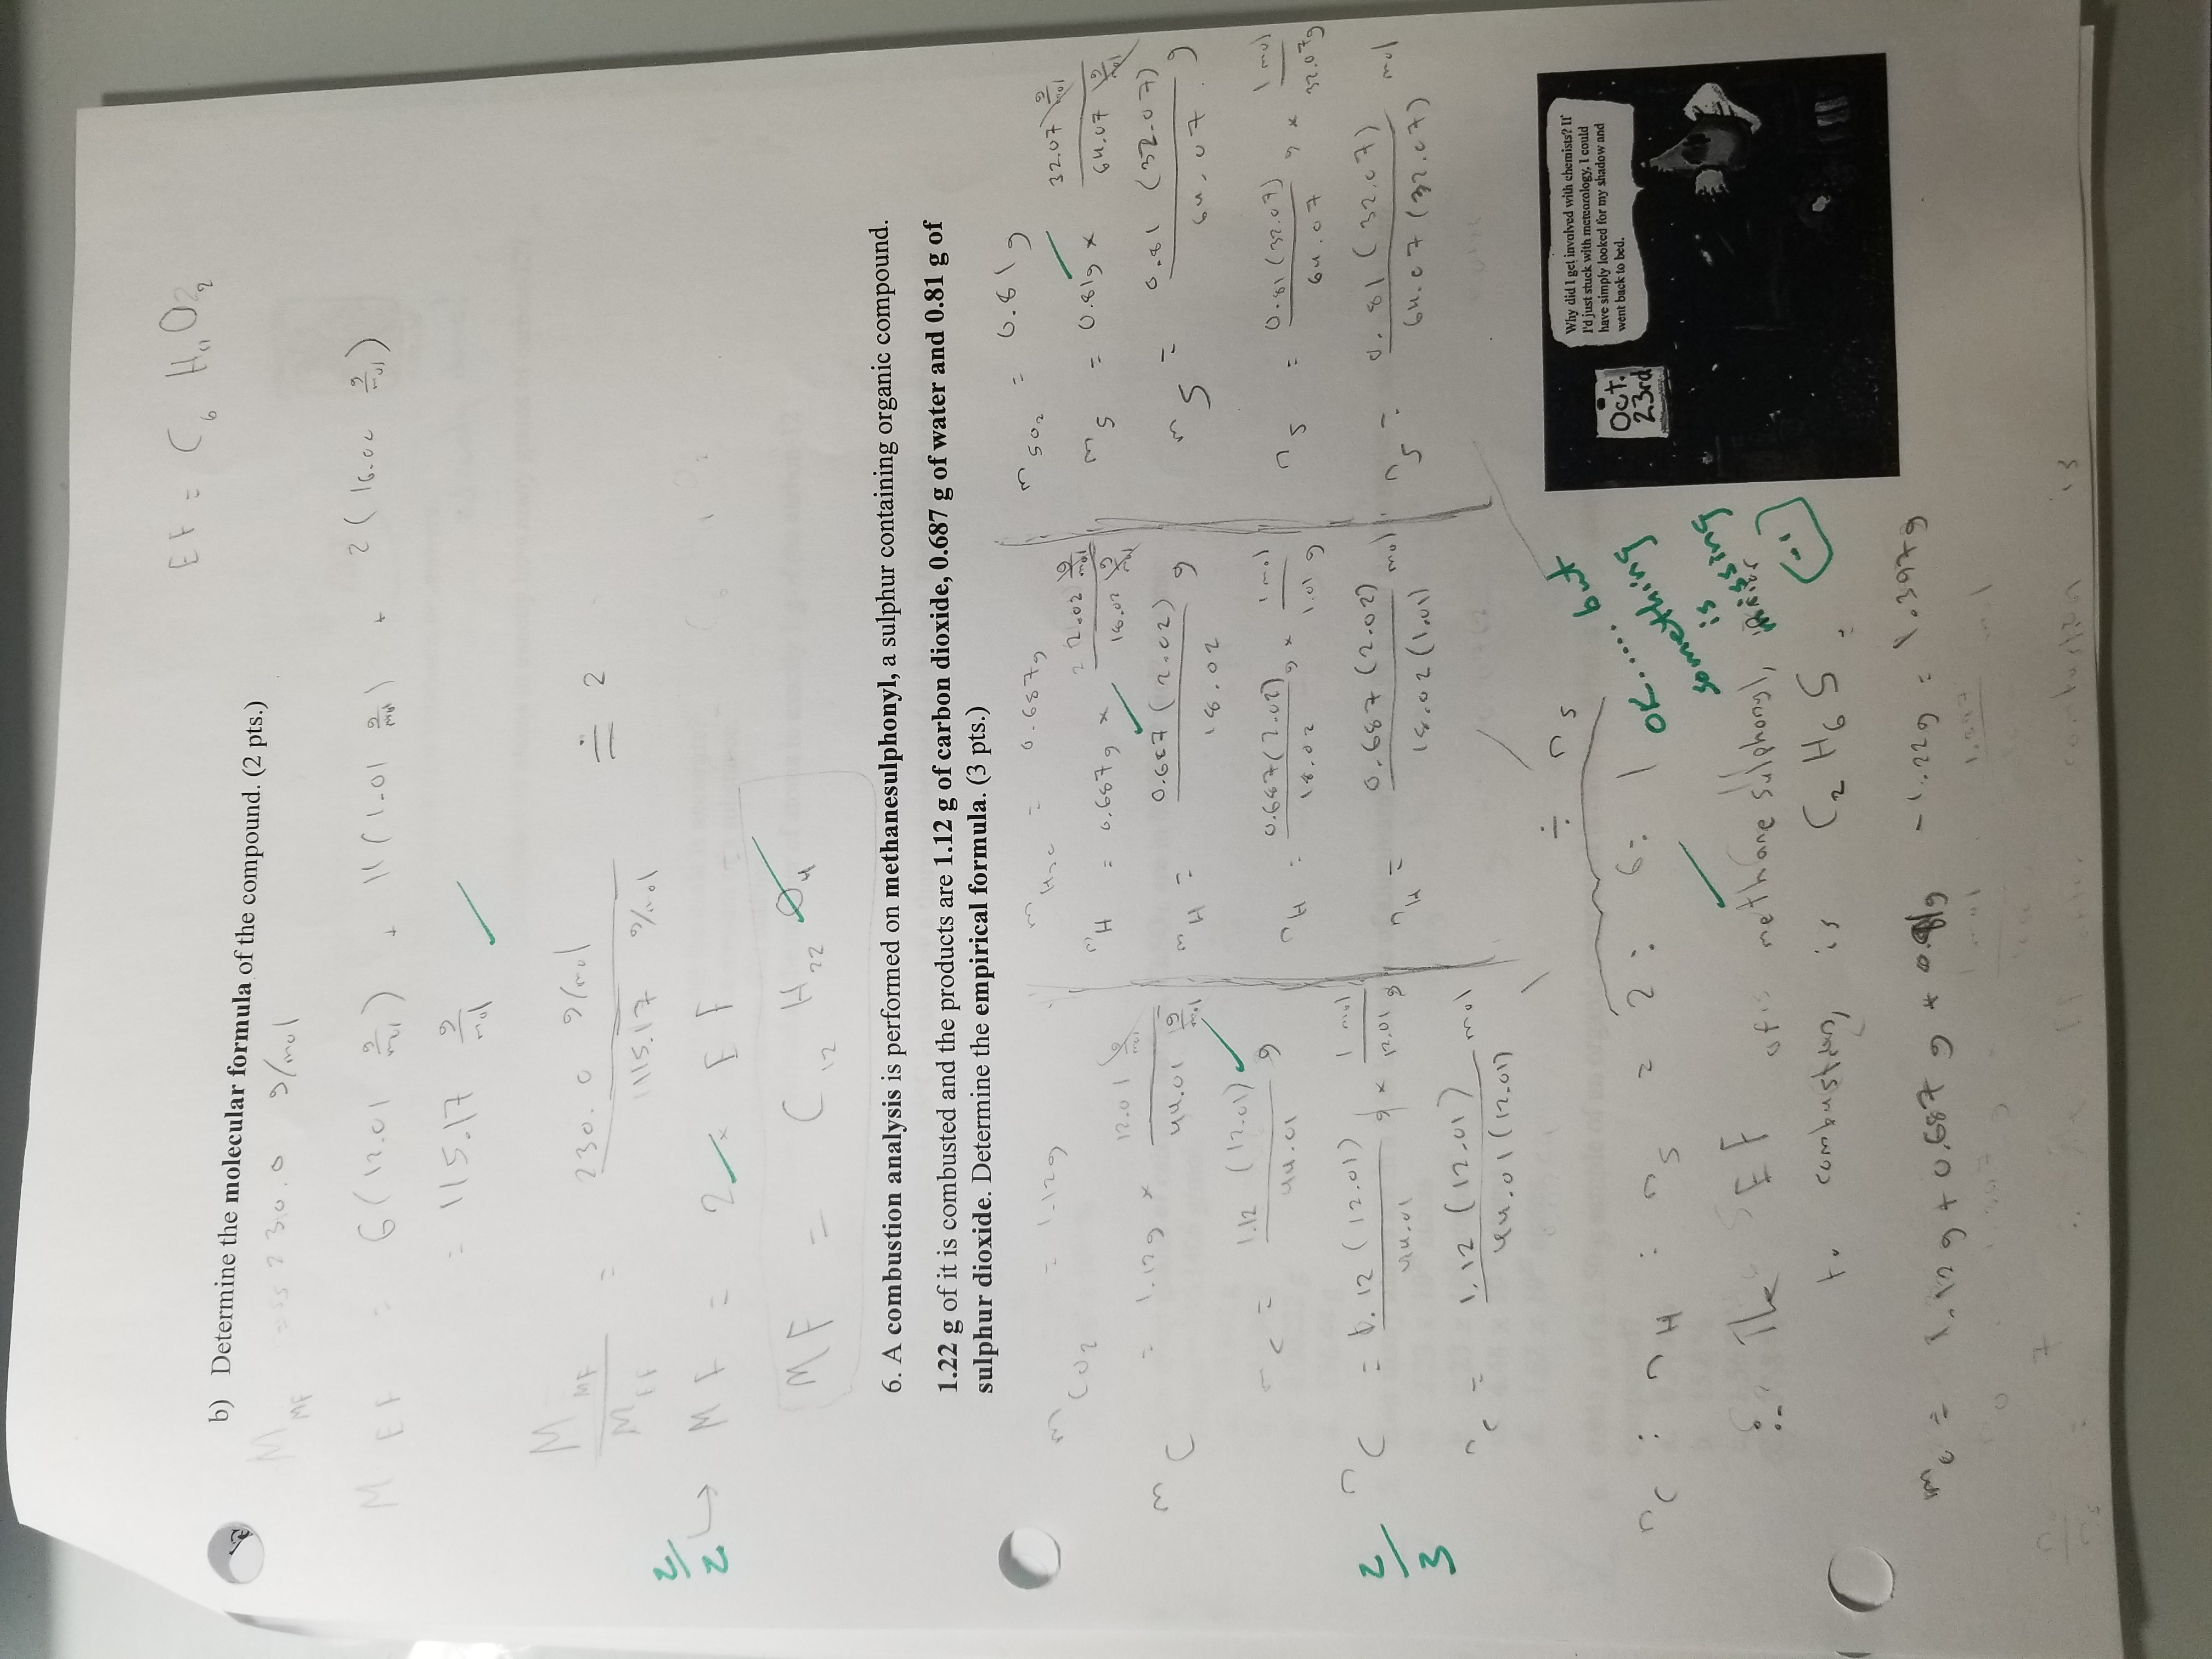 EF = C6 H11 O2
b) Determine the molecular formula of the compound. (2 pts.)
M MF 230.0 g/mol
M EF = 6(12.01 g/mol) + 11(1.01 g/mol) + 2(16.00 g/mol)
= 115.17 g/mol ✓
M MF / M EF = 230.0 g/mol / 115.17 g/mol ≐ 2
2/2
↳ MF = 2 × EF
MF = C12 H22 O4
6. A combustion analysis is performed on methanesulphonyl, a sulphur containing organic compound.
1.22 g of it is combusted and the products are 1.12 g of carbon dioxide, 0.687 g of water and 0.81 g of
sulphur dioxide. Determine the empirical formula. (3 pts.)
m CO2 = 1.12g
m C = 1.12g × 12.01 g/mol / 44.01 g/mol
m C = 1.12 (12.01) / 44.01 g
n C = 1.12 (12.01) / 44.01 g × 1 mol / 12.01 g
n C = 1.12 (12.01) / 44.01 (12.01) mol
m H2O = 0.687g
m H = 0.687g × 2.02 g/mol / 18.02 g/mol
m H = 0.687 (2.02) / 18.02 g
n H = 0.687 (2.02) / 18.02 g × 1 mol / 1.01 g
n H = 0.687 (2.02) / 18.02 (1.01) mol
m SO2 = 0.81g
m S = 0.81g × 32.07 g/mol / 64.07 g/mol
m S = 0.81 (32.07) / 64.07 g
n S = 0.81 (32.07) / 64.07 g × 1 mol / 32.07g
n S = 0.81 (32.07) / 64.07 (32.07) mol
2/3
÷ n S
n C : n H : n S = 2 : 6 : 1
OK..... but
something
is
missing
∴ The EF of methanesulphonyl, prior
to combustion, is C2 H6 S.
Why did I get involved with chemists? If
I'd just stuck with meteorology, I could
have simply looked for my shadow and
went back to bed.
Oct.
23rd
m o = 1.12g + 0.687 g + 0.81g - 1.22g = 1.397g
combustion is